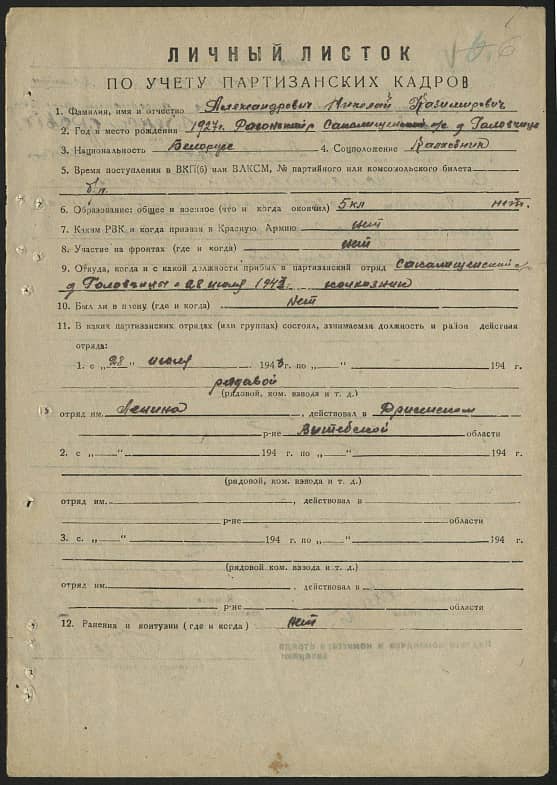 ЛИЧНЫЙ ЛИСТОК
ПО УЧЕТУ ПАРТИЗАНСКИХ КАДРОВ
1. Фамилия, имя и отчество Александрович Николай Казимирович
2. Год и место рождения 1927г. с/с д Головчицы
3. Национальность Белорус 4. Соцположение Колхозник
5. Время поступления в ВКП(б) или ВЛКСМ, № партийного или комсомольского билета
б/п.
6. Образование: общее и военное (что и когда окончил) 5кл нет.
7. Каким РВК и когда призван в Красную Армию нет
8. Участие на фронтах (где и когда) нет
9. Откуда, когда и с какой должности прибыл в партизанский отряд
д Головчицы 28 июля 1943г. колхозник
10. Был ли в плену (где и когда) Нет
11. В каких партизанских отрядах (или группах) состоял, занимаемая должность и район действия
отряда:
1. с „28" июля 1943г. по „ " 194 г.
рядовой
(рядовой, ком. взвода и т. д.)
отряд им. Ленина, действовал в Дриссенском
р-не Витебской области
2. с „ " 194 г. по „ " 194 г.
(рядовой, ком. взвода и т. д.)
отряд им. , действовал в
р-не области
3. с. „ " 194 г. по „ " 194 г.
(рядовой ком. взвода и т. д.)
отряд им. , действовал в
р-не области
12. Ранения и контузии (где и когда) нет